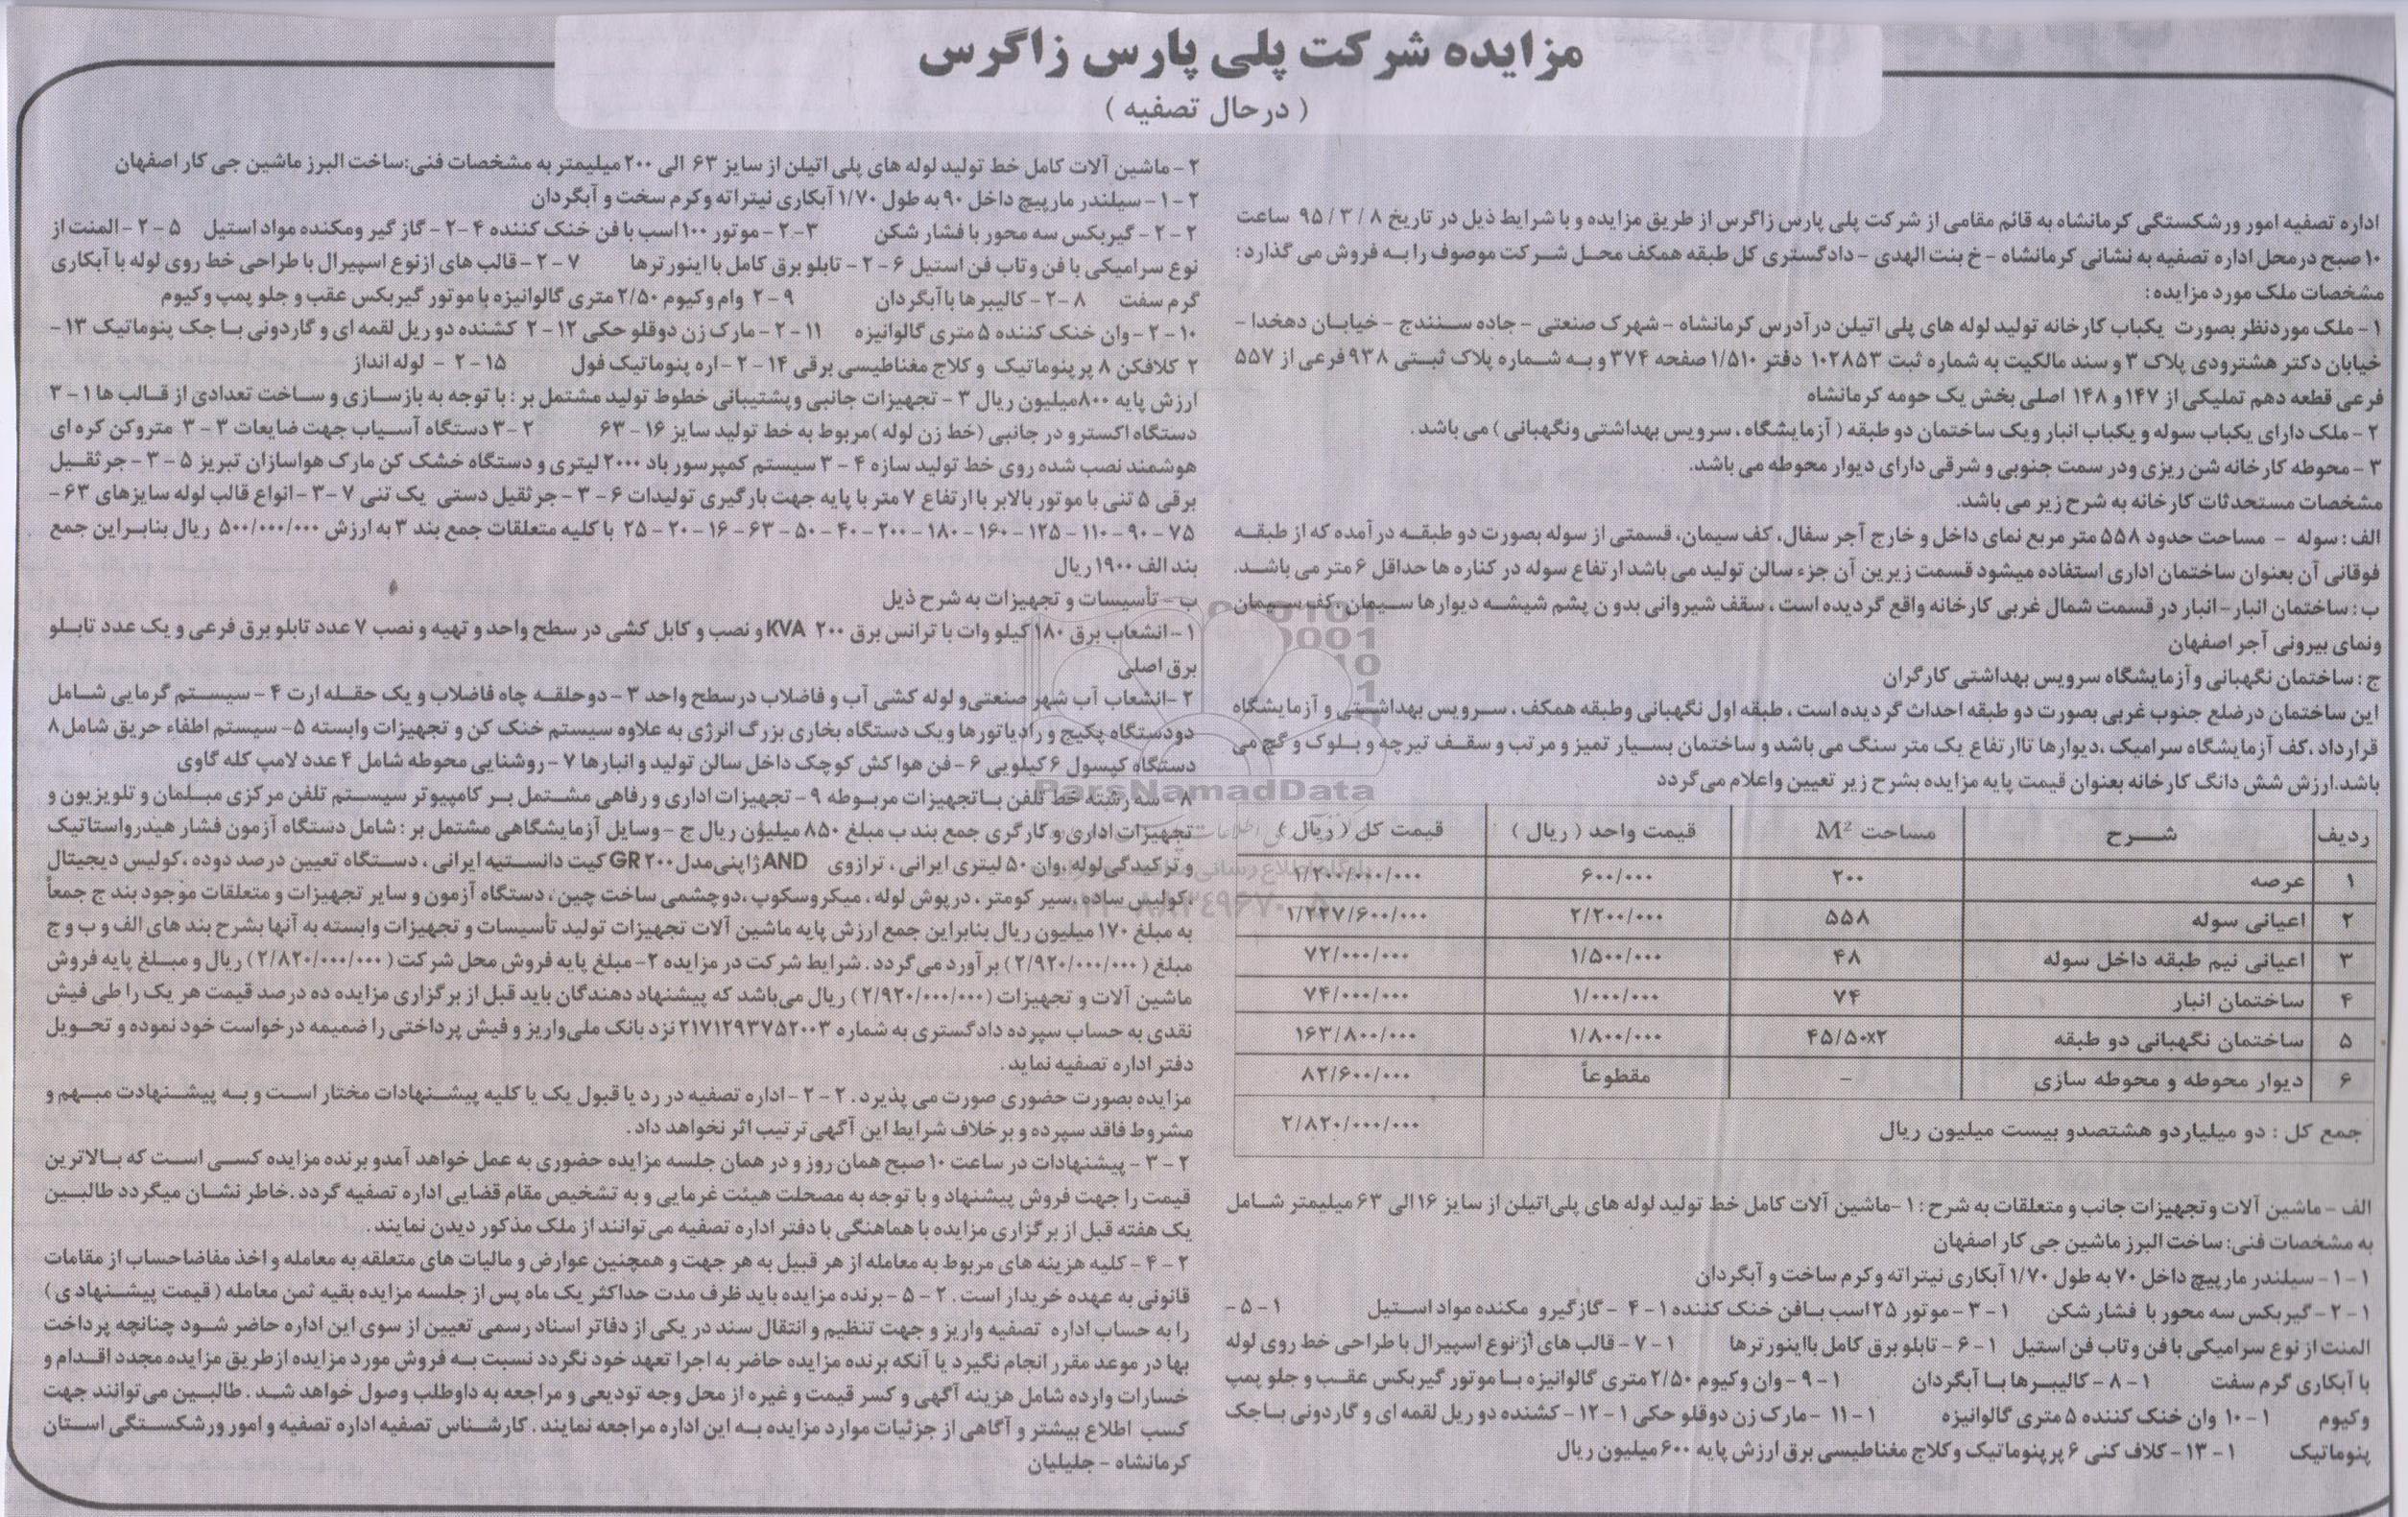 مزایده شرکت پلی پارس زاگرس
( درحال تصفیه )
اداره تصفیه امور ورشکستگی کرمانشاه به قائم مقامی از شرکت پلی پارس زاگرس از طریق مزایده و با شرایط ذیل در تاریخ ۹۵/۳/۸ ساعت
۱۰ صبح درمحل اداره تصفیه به نشانی کرمانشاه - خ بنت الهدی - دادگستری کل طبقه همکف محل شرکت موصوف را به فروش می گذارد:
مشخصات ملک مورد مزایده:
۱- ملک موردنظر بصورت یکباب کارخانه تولید لوله های پلی اتیلن در آدرس کرمانشاه - شهرک صنعتی - جاده سنندج - خیابان دهخدا -
خیابان دکتر هشترودی پلاک ۳ و سند مالکیت به شماره ثبت ۱۰۲۸۵۳ دفتر ۱/۵۱۰ صفحه ۳۷۴ و به شماره پلاک ثبتی ۹۳۸ فرعی از ۵۵۷
فرعی قطعه دهم تملیکی از ۱۴۷ و ۱۴۸ اصلی بخش یک حومه کرمانشاه
۲- ملک دارای یکباب سوله و یکباب انبار ویک ساختمان دو طبقه ( آزمایشگاه ، سرویس بهداشتی ونگهبانی ) می باشد .
۳- محوطه کارخانه شن ریزی ودر سمت جنوبی و شرقی دارای دیوار محوطه می باشد.
مشخصات مستحدثات کارخانه به شرح زیر می باشد.
الف : سوله - مساحت حدود ۵۵۸ متر مربع نمای داخل و خارج آجر سفال، کف سیمان، قسمتی از سوله بصورت دو طبقه در آمده که از طبقه
فوقانی آن بعنوان ساختمان اداری استفاده میشود قسمت زیرین آن جزء سالن تولید می باشد ارتفاع سوله در کناره ها حداقل ۶ متر می باشد.
ب : ساختمان انبار- انبار در قسمت شمال غربی کارخانه واقع گردیده است ، سقف شیروانی بدو ن پشم شیشه دیوارها سیمان ،کف سیمان
ونمای بیرونی آجر اصفهان
ج : ساختمان نگهبانی و آزمایشگاه سرویس بهداشتی کارگران
این ساختمان درضلع جنوب غربی بصورت دو طبقه احداث گردیده است ، طبقه اول نگهبانی وطبقه همکف ، سرویس بهداشتی و آزمایشگاه
قرارداد ،کف آزمایشگاه سرامیک ،دیوارها تاارتفاع یک متر سنگ می باشد و ساختمان بسیار تمیز و مرتب و سقف تیرچه و بلوک و گچ می
باشد.ارزش شش دانگ کارخانه بعنوان قیمت پایه مزایده بشرح زیر تعیین واعلام می گردد
ردیف شرح مساحت M² قیمت واحد ( ریال ) قیمت کل ( ریال )
۱ عرصه ۲۰۰ ۶۰۰/۰۰۰ ۱/۲۰۰/۰۰۰/۰۰۰
۲ اعیانی سوله ۵۵۸ ۲/۲۰۰/۰۰۰ ۱/۲۲۷/۶۰۰/۰۰۰
۳ اعیانی نیم طبقه داخل سوله ۴۸ ۱/۵۰۰/۰۰۰ ۷۲/۰۰۰/۰۰۰
۴ ساختمان انبار ۷۴ ۱/۰۰۰/۰۰۰ ۷۴/۰۰۰/۰۰۰
۵ ساختمان نگهبانی دو طبقه ۴۵/۵۰x۲ ۱/۸۰۰/۰۰۰ ۱۶۳/۸۰۰/۰۰۰
۶ دیوار محوطه و محوطه سازی - مقطوعاً ۸۲/۶۰۰/۰۰۰
جمع کل : دو میلیاردو هشتصدو بیست میلیون ریال ۲/۸۲۰/۰۰۰/۰۰۰
الف - ماشین آلات و تجهیزات جانب و متعلقات به شرح : ۱-ماشین آلات کامل خط تولید لوله های پلی اتیلن از سایز ۱۶ الی ۶۳ میلیمتر شامل
به مشخصات فنی: ساخت البرز ماشین جی کار اصفهان
۱-۱- سیلندر مارپیچ داخل ۷۰ به طول ۱/۷۰ آبکاری نیتراته وکرم ساخت و آبگردان
۱-۲- گیربکس سه محور با فشار شکن ۱-۳- موتور ۲۵ اسب بافن خنک کننده ۱-۴ -گازگیرو مکنده مواد استیل ۱-۵-
المنت از نوع سرامیکی با فن وتاب فن استیل ۱-۶- تابلو برق کامل بااینورترها ۱-۷- قالب های از نوع اسپیرال با طراحی خط روی لوله
با آبکاری گرم سفت ۱-۸- کالیبرها با آبگردان ۱-۹- وان وکیوم ۲/۵۰ متری گالوانیزه با موتور گیربکس عقب و جلو پمپ
وکیوم ۱-۱۰ وان خنک کننده ۵ متری گالوانیزه ۱-۱۱ -مارک زن دوقلو حکی ۱-۱۲- کشنده دو ریل لقمه ای و گاردونی باجک
پنوماتیک ۱-۱۳- کلاف کنی ۶ پر پنوماتیک وکلاج مغناطیسی برق ارزش پایه ۶۰۰ میلیون ریال
۲- ماشین آلات کامل خط تولید لوله های پلی اتیلن از سایز ۶۳ الی ۲۰۰ میلیمتر به مشخصات فنی:ساخت البرز ماشین جی کار اصفهان
۲-۱- سیلندر مارپیچ داخل ۹۰ به طول ۱/۷۰ آبکاری نیتراته وکرم سخت و آبگردان
۲-۲- گیربکس سه محور با فشار شکن ۲-۳- موتور ۱۰۰ اسب با فن خنک کننده ۲-۴- گاز گیر ومکنده مواد استیل ۲-۵- المنت از
نوع سرامیکی با فن وتاب فن استیل ۲-۶- تابلو برق کامل با اینورترها ۲-۷- قالب های ازنوع اسپیرال با طراحی خط روی لوله با آبکاری
گرم سفت ۲-۸- کالیبرها با آبگردان ۲-۹ وام وکیوم ۲/۵۰ متری گالوانیزه با موتور گیربکس عقب و جلو پمپ وکیوم
۲-۱۰- وان خنک کننده ۵ متری گالوانیزه ۲-۱۱- مارک زن دوقلو حکی ۲-۱۲ کشنده دو ریل لقمه ای و گاردونی با جک پنوماتیک ۱۳-
۲ کلافکن ۸ پر پنوماتیک و کلاج مغناطیسی برقی ۲-۱۴- اره پنوماتیک فول ۲-۱۵ - لوله انداز
ارزش پایه ۸۰۰میلیون ریال ۳- تجهیزات جانبی وپشتیبانی خطوط تولید مشتمل بر : با توجه به بازسازی و ساخت تعدادی از قالب ها ۱-۳
دستگاه اکسترو در جانبی (خط زن لوله )مربوط به خط تولید سایز ۱۶-۶۳ ۳-۲ دستگاه آسیاب جهت ضایعات ۳-۳ متروکن کره ای
هوشمند نصب شده روی خط تولید سازه ۳-۴ سیستم کمپرسور باد ۲۰۰۰ لیتری و دستگاه خشک کن مارک هواسازان تبریز ۳-۵- جرثقیل
برقی ۵ تنی با موتور بالابر با ارتفاع ۷ متر با پایه جهت بارگیری تولیدات ۳-۶- جرثقیل دستی یک تنی ۳-۷- انواع قالب لوله سایزهای ۶۳-
۷۵-۹۰-۱۱۰-۱۲۵-۱۶۰-۱۸۰-۲۰۰-۴۰-۵۰-۶۳-۱۶-۲۰-۲۵ با کلیه متعلقات جمع بند ۳ به ارزش ۵۰۰/۰۰۰/۰۰۰ ریال بنابراین جمع
بند الف ۱۹۰۰ ریال
ب - تأسیسات و تجهیزات به شرح ذیل
۱- انشعاب برق ۱۸۰ کیلو وات با ترانس برق ۲۰۰ KVA و نصب و کابل کشی در سطح واحد و تهیه و نصب ۷ عدد تابلو برق فرعی و یک عدد تابلو
برق اصلی
۲- انشعاب آب شهر صنعتی و لوله کشی آب و فاضلاب درسطح واحد ۳- دوحلقه چاه فاضلاب و یک حقله ارت ۴- سیستم گرمایی شامل
دودستگاه پکیج و رادیاتورها ویک دستگاه بخاری بزرگ انرژی به علاوه سیستم خنک کن و تجهیزات وابسته ۵- سیستم اطفاء حریق شامل ۸
دستگاه کپسول ۶ کیلویی ۶- فن هوا کش کوچک داخل سالن تولید و انبارها ۷- روشنایی محوطه شامل ۴ عدد لامپ کله گاوی
۸- سه رشته خط تلفن باتجهیزات مربوطه ۹- تجهیزات اداری و رفاهی مشتمل بر کامپیوتر سیستم تلفن مرکزی مبلمان و تلویزیون و
تجهیزات اداری و کارگری جمع بند ب مبلغ ۸۵۰ میلیون ریال ج - وسایل آزمایشگاهی مشتمل بر : شامل دستگاه آزمون فشار هیدرواستاتیک
و ترکیدگی لوله ،وان ۵۰ لیتری ایرانی ، ترازوی AND ژاپنی مدل GR ۲۰۰ کیت دانستیه ایرانی ، دستگاه تعیین درصد دوده ،کولیس دیجیتال
،کولیس ساده ،سیر کومتر ، درپوش لوله ، میکروسکوپ ،دوچشمی ساخت چین، دستگاه آزمون و سایر تجهیزات و متعلقات موجود بند ج جمعاً
به مبلغ ۱۷۰ میلیون ریال بنابراین جمع ارزش پایه ماشین آلات تجهیزات تولید تأسیسات و تجهیزات وابسته به آنها بشرح بند های الف و ب و ج
مبلغ (۲/۹۲۰/۰۰۰/۰۰۰) بر آورد می گردد . شرایط شرکت در مزایده ۲- مبلغ پایه فروش محل شرکت (۲/۸۲۰/۰۰۰/۰۰۰) ریال و مبلغ پایه فروش
ماشین آلات و تجهیزات (۲/۹۲۰/۰۰۰/۰۰۰) ریال می باشد که پیشنهاد دهندگان باید قبل از برگزاری مزایده ده درصد قیمت هر یک را طی فیش
نقدی به حساب سپرده دادگستری به شماره ۲۱۷۱۲۹۳۷۵۲۰۰۳ نزد بانک ملی واریز و فیش پرداختی را ضمیمه درخواست خود نموده و تحویل
دفتر اداره تصفیه نماید .
مزایده بصورت حضوری صورت می پذیرد . ۲-۲- اداره تصفیه در رد یا قبول یک یا کلیه پیشنهادات مختار است و به پیشنهادت مبهم و
مشروط فاقد سپرده و بر خلاف شرایط این آگهی ترتیب اثر نخواهد داد .
۲-۳- پیشنهادات در ساعت ۱۰ صبح همان روز و در همان جلسه مزایده حضوری به عمل خواهد آمدو برنده مزایده کسی است که بالاترین
قیمت را جهت فروش پیشنهاد و با توجه به مصحلت هیئت غرمایی و به تشخیص مقام قضایی اداره تصفیه گردد .خاطر نشان میگردد طالبین
یک هفته قبل از برگزاری مزایده با هماهنگی با دفتر اداره تصفیه می توانند از ملک مذکور دیدن نمایند .
۲-۴- کلیه هزینه های مربوط به معامله از هر قبیل به هر جهت و همچنین عوارض و مالیات های متعلقه به معامله و اخذ مفاضاحساب از مقامات
قانونی به عهده خریدار است . ۲-۵- برنده مزایده باید ظرف مدت حداکثر یک ماه پس از جلسه مزایده بقیه ثمن معامله ( قیمت پیشنهادی )
را به حساب اداره تصفیه واریز و جهت تنظیم و انتقال سند در یکی از دفاتر اسناد رسمی تعیین از سوی این اداره حاضر شود چنانچه پرداخت
بها در موعد مقرر انجام نگیرد یا آنکه برنده مزایده حاضر به اجرا تعهد خود نگردد نسبت به فروش مورد مزایده ازطریق مزایده مجدد اقدام و
خسارات وارده شامل هزینه آگهی و کسر قیمت و غیره از محل وجه تودیعی و مراجعه به داوطلب وصول خواهد شد . طالبین می توانند جهت
کسب اطلاع بیشتر و آگاهی از جزئیات موارد مزایده به این اداره مراجعه نمایند . کارشناس تصفیه اداره تصفیه و امور ورشکستگی استان
کرمانشاه - جلیلیان
ParsNamadData